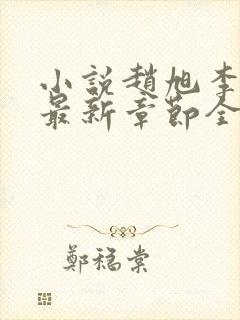 小說趙旭李
最新章節全
鄭穩棠